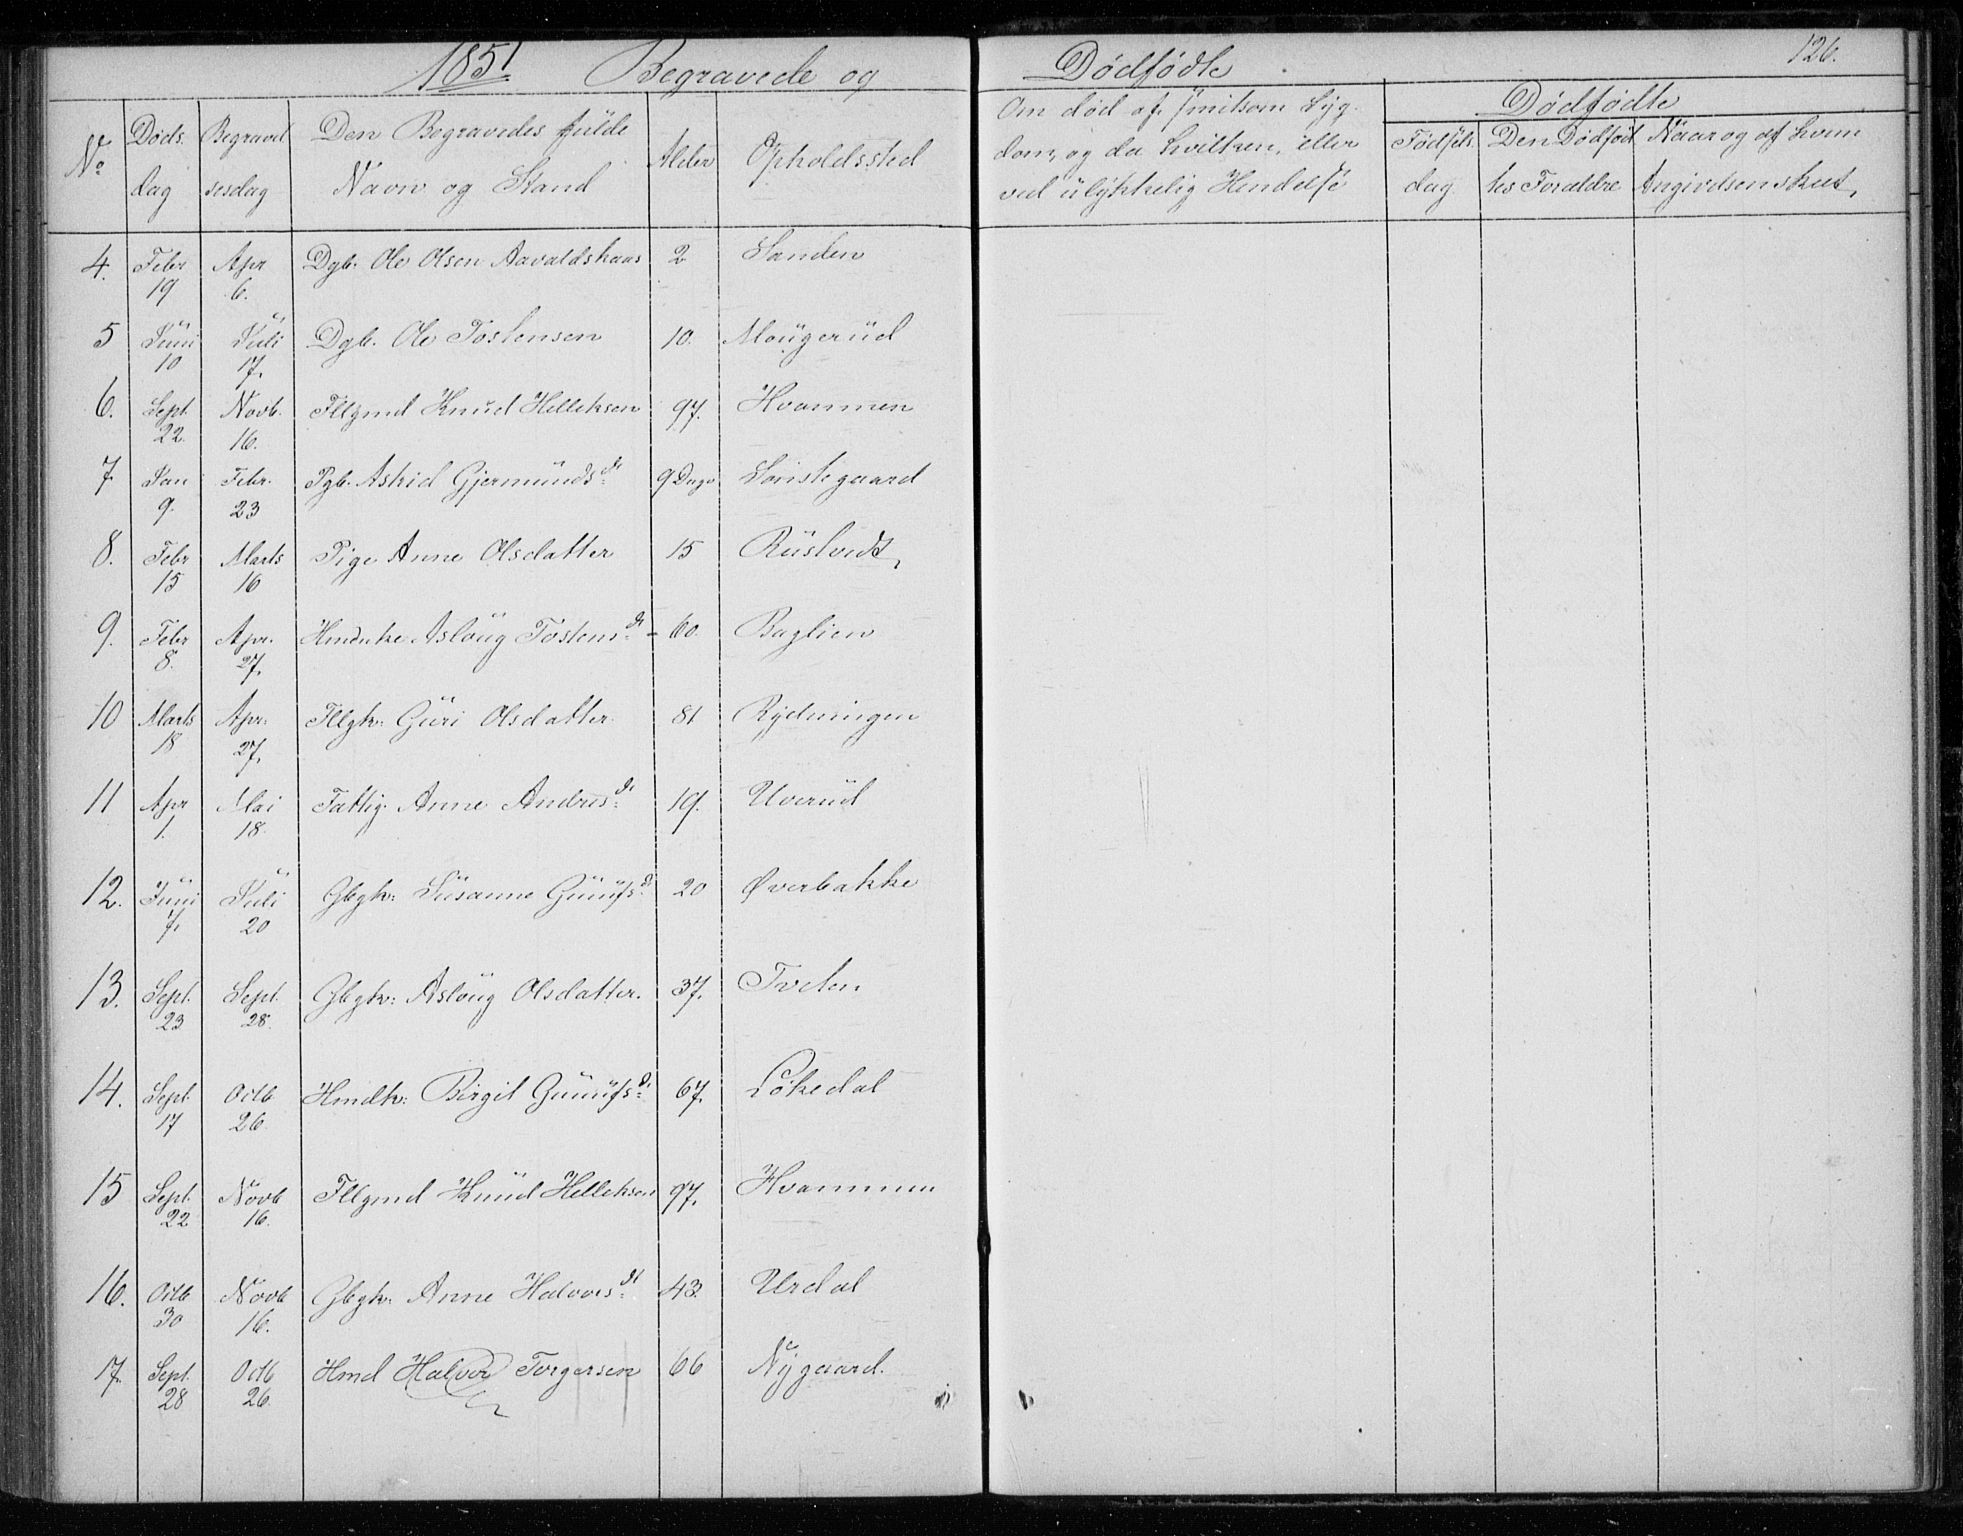 1851 Begravede og Dødfødte 126.
No Døds dag Begravelsesdag Den Begravedes fulde Navn og Stand Alder Opholdssted
Om død af smitsom Syg-
dom, og da hvilken, eller
ved ulykkelig Hendelse
Dødfødte
Fødsels dag Den Dødfødtes Forældre Naar og af hvem Angivelsen skeet
4. Febr 19 Apr 6. Dgb. Ole Olsen Aavaldshaas 2 Sanden
5 Juni 10 Juli 17. Dgb. Ole Tostensen 10. Mougerud
6. Sept. 22. Novb. 16. Fllgmd Knud Helleksen 97. Hvammen
7. Jan 9. Febr. 23 Pgb. Astrid Gjermundsdr 9 Dage Sønstegaard
8. Febr 15 Marts 16 Pige Anne Olsdatter 15 Rustvedt
9. Febr 8. Apr. 27. Hmdenke Asloug Tostensdr 60. Baglien
10 Marts 18 Apr. 27. Fllgk: Guri Olsdatter 81 Rydningen
11 Apr 1. Mai 18. Fattig Anne Andresdr 19. Uverud
12. Juni 7. Juli 20 Gbgk: Susanne Gunufsdr 20 Øverbakke
13. Sept. 23 Sept. 28. Gbgk: Asloug Olsdatter. 37. Tveten
14. Sept. 17 Octb 26 Hmdk: Birgit Gunufsdr 67. Løkedal
15 Sept. 22 Novb 16. Fllgmd Knud Helleksen 97. Hvammen
16. Octb 30 Novb 16. Gbgk: Anne Halvorsdr 43. Urdal
17. Sept. 28 Octb 26. Hmd Halvor Torgersen 66 Nygaard.